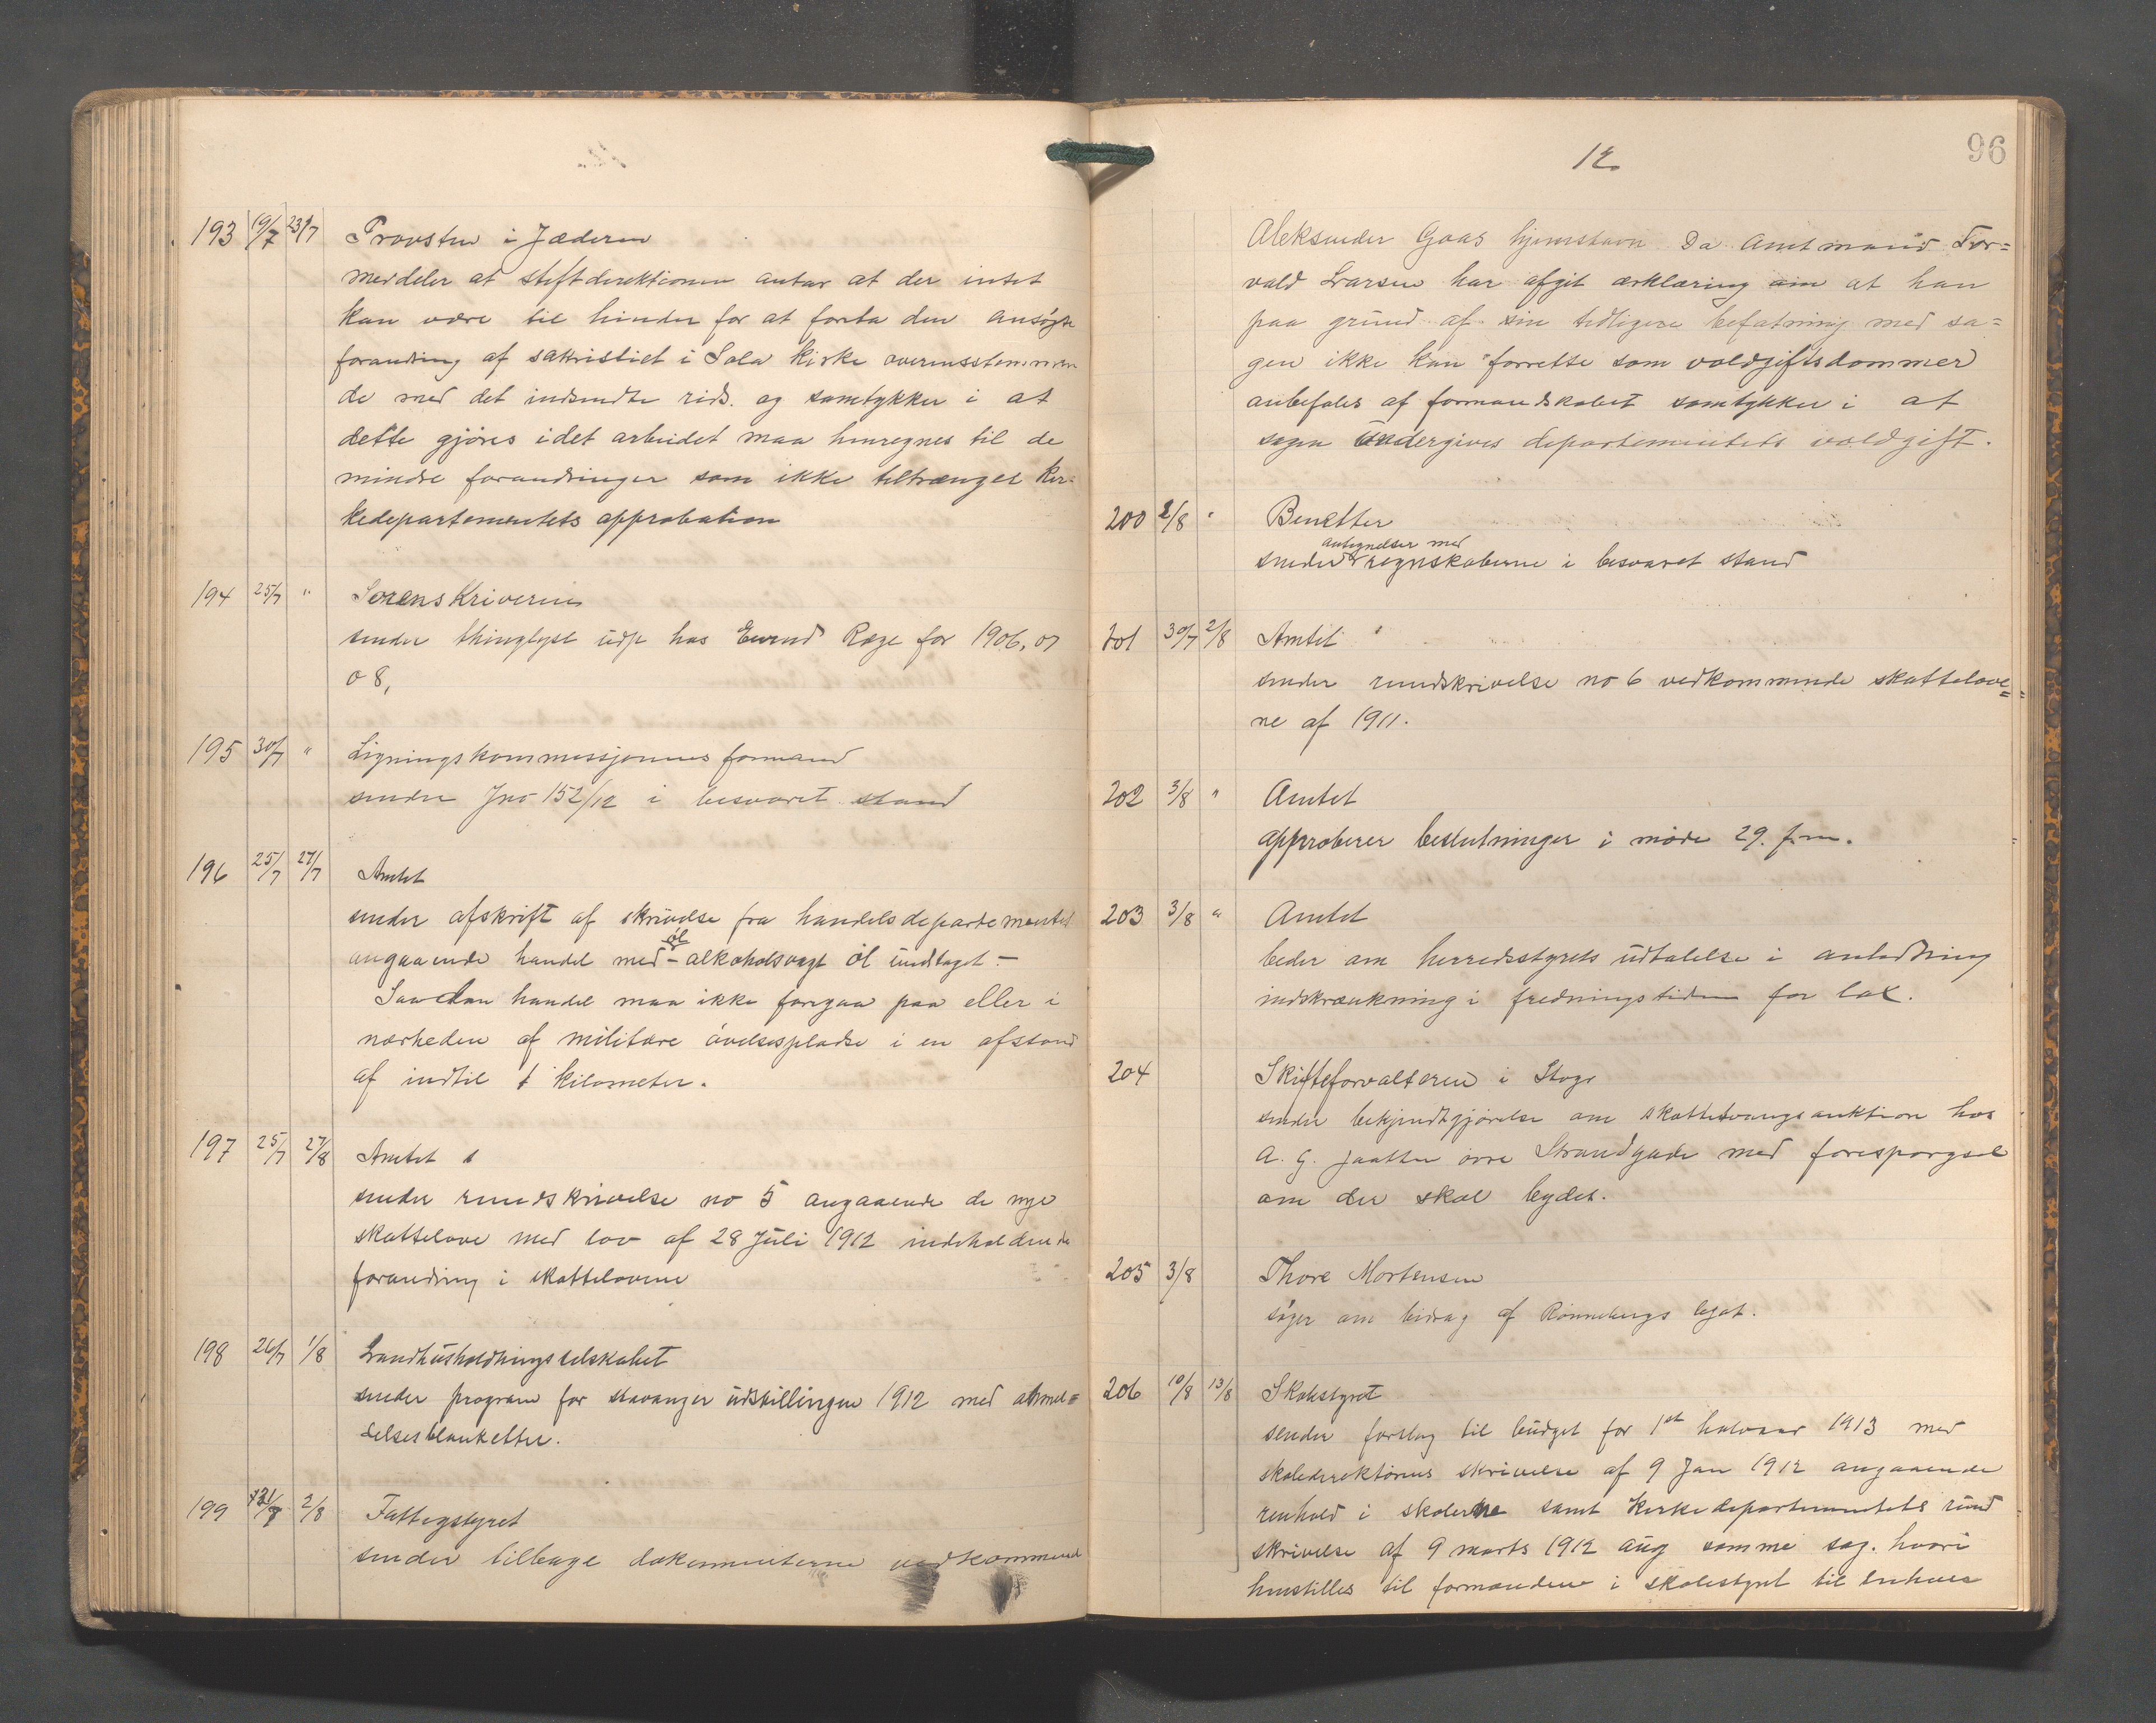 193 19/7 23/7 Provsten i Jæderen
meddeler at stiftdirektionen antar at der intet
kan være til hinder for at foreta den ansøgte
forandring af sakristiet i Sola kirke overensstemmen
de med det indsendte rids. og samtykker i at
dette gjøres idet arbeidet maa henregnes til de
mindre forandringer som ikke tiltrænger kir=
kedepartementets approbation
194 25/7 " Sorenskriveren
sender thinglyst udp hos Eivind Røge for 1906, 07
08,
195 30/7 " Ligningskommissjonens formand
sender Jno 152/12 i besvaret stand
196 25/7 27/7 Amtet
sender afskrift af skrivelse fra handelsdepartementet
angaaende handel med øl - alkoholsvagt øl undtaget -
Saadan handel maa ikke foregaa paa eller i
nærheden af militære øvelsespladse i en afstand
af indtil 1 kilometer.
197 25/7 27/8 Amtet
sender rundskrivelse no 5 angaaende de nye
skattelove med lov af 28 Juli 1912 indeholdende
forandring i skattelovene
198 26/7 1/8 Landhusholdningsselskabet
sender program for stavanger udstillingen 1912 med anmel=
delsesblanketter.
199 31/7 2/8 Fattigstyret
sender tilbage dokumenterne vedkommend
12
96
Aleksander Goas hjemstavn Da Amtmand Tor=
vald Larsen har afgit erklæring om at han
paa grund af sin tidligere befatning med sa=
gen ikke kan forrette som voldgiftsdommer
anbefales af formandskabet samtykker i at
sagen undergives departementets voldgift.
200 2/8 " Benetter
sender antegnelser med regnskaberne i besvaret stand
201 30/7 2/8 Amtet
sender rundskrivelse no 6 vedkommende skattelove=
ne af 1911.
202 3/8 " Amtet
approberer beslutninger i møde 29. f.m.
203 3/8 " Amtet
beder om herredsstyrets udtalelse i anledning
indskrænkning i fredningstiden for lax.
204 Skifteforvalteren i Stvgr
sender bekjendtgjørelse om skattetvangsauktion hos
A. G. Jaatten øvre Strandgade med forespørgsel
om der skal bydes.
205 3/8 Thore Mortensen
søger om bidrag af Rønnebergs legat.
206 10/8 13/8 Skolestyret
sender forslag til budget for 1st halvaar 1913 med
skoledirektørens skrivelse af 9 Jan 1912 angaaende
renhold i skolerne samt Kirkedepartementets rund
skrivelse af 9 marts 1912 ang samme sag. hvori
henstilles til formanden i skolestyret til enhver